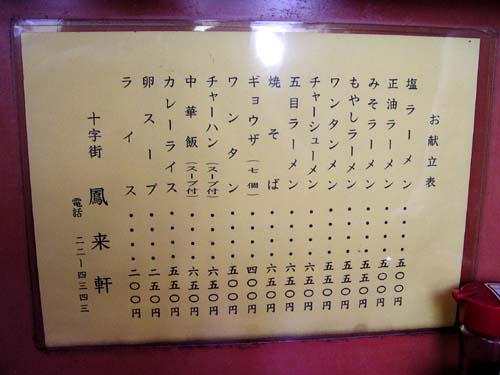 お献立表
塩ラーメン・・・・・五〇〇円
正油ラーメン・・・・五〇〇円
みそラーメン・・・・五五〇円
もやしラーメン・・・五五〇円
ワンタンメン・・・・五五〇円
チャーシューメン・・六五〇円
五目ラーメン・・・・六五〇円
焼そば・・・・・六五〇円
ギョウザ(七個)・・・四〇〇円
ワンタン・・・・・五〇〇円
チャーハン(スープ付)・・・六五〇円
中華飯(スープ付)・・・六五〇円
カレーライス・・・・五五〇円
卵スープ・・・・・二五〇円
ライス・・・・・二〇〇円
十字街 鳳来軒
電話 二二ー四三四三